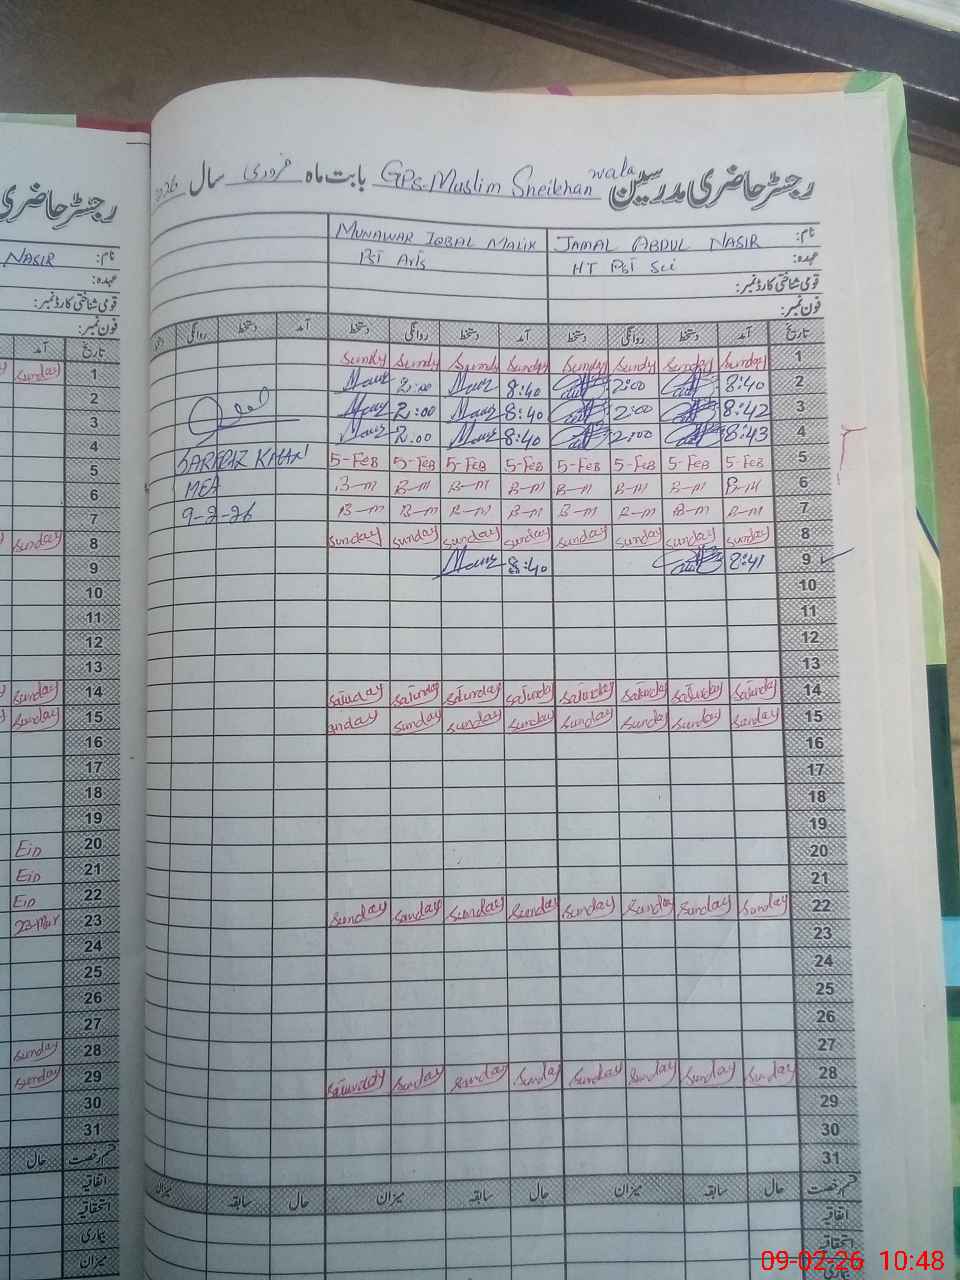 رجسٹر حاضری مدرسین GPS. Muslim Sheikhan wala بابت ماہ فروری سال
نام: JAMAL ABDUL NASIR MUNAWAR IQBAL MALIK
عہدہ: HT PST Sci PST Arts
قومی شناختی کارڈ نمبر:
فون نمبر:
تاریخ آمد دستخط روانگی دستخط آمد دستخط روانگی دستخط آمد دستخط روانگی
1 Sunday Sunday Sundy Sunday Sunday Sunday Sundy Sundy
2 8:40 2:00 8:40 2:00
3 8:42 2:00 8:40 2:00
4 8:43 2:00 8:40 2:00
5 5-Feb 5-Feb 5-Feb 5-Feb 5-Feb 5-Feb 5-Feb 5-Feb SARFRAZ
6 B-m B-m B-m B-m B-m B-m B-m B-m MEA
7 B-m B-m B-m B-m B-m B-m B-m B-m 9-2-26
8 Sunday Sunday Sunday Sunday Sunday Sunday Sunday Sunday
9 8:41 8:40
10
11
12
13
14 Saturday Saturday Saturday Saturday Saturday Saturday Saturday Saturday
15 Sunday Sunday Sunday Sunday Sunday Sunday Sunday unday
16
17
18
19
20
21
22 Sunday Sunday Sunday Sunday Sunday Sunday Sunday Sunday
23
24
25
26
27
28 Sunday Sunday Sunday Sunday Sunday Sunday Sunday
29
30
31
قسم رخصت حال سابقہ میزان حال سابقہ میزان حال سابقہ میزان
اتفاقیہ
استحقاقیہ
بیماری
رجسٹر حاضری
نام: NASIR
عہدہ:
قومی شناختی کارڈ نمبر:
فون نمبر:
تاریخ آمد
1 Sunday
2
3
4
5
6
7
8 Sunday
9
10
11
12
13
14 Sunday
15 Sunday
16
17
18
19
20 EID
21 EID
22 EID
23 23-Mar
24
25
26
27
28 Sunday
29 Sunday
30
31
قسم رخصت حال
اتفاقیہ
استحقاقیہ
بیماری
میزان
09-02-26 10:48